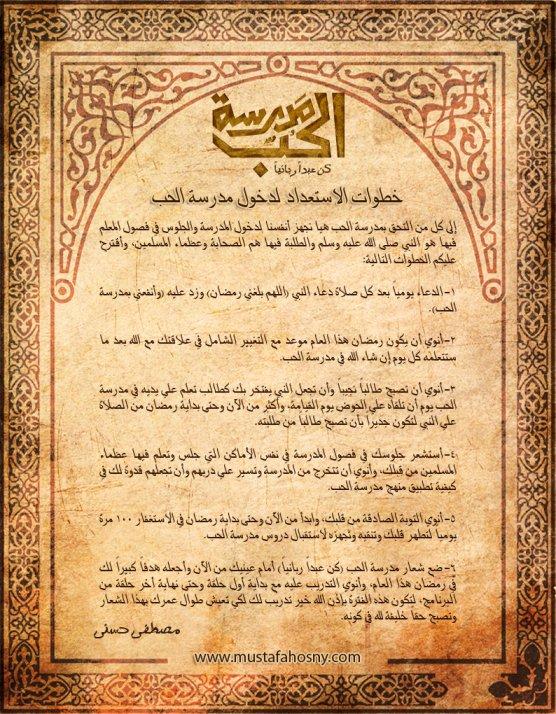 مدرسة
الحب
كن عبداً ربانياً
خطوات الاستعداد لدخول مدرسة الحب
إلى كل من التحق بمدرسة الحب هيا نجهز أنفسنا لدخول المدرسة والجلوس في فصول المعلم
فيها هو النبي صلى الله عليه وسلم والطلبة فيها هم الصحابة وعظماء المسلمين، وأقترح
عليكم الخطوات التالية:
١-الدعاء يومياً بعد كل صلاة دعاء النبي (اللهم بلغني رمضان) وزد عليه (وأنفعني بمدرسة
الحب).
٢-أنوي أن يكون رمضان هذا العام موعد مع التغيير الشامل في علاقتك مع الله بعد ما
ستتعلمه كل يوم إن شاء الله في مدرسة الحب.
٣-أنوي أن تصبح طالباً نجيباً وأن تجعل النبي يفتخر بك كطالب تعلم علي يديه في مدرسة
الحب يوم أن تلقاه علي الحوض يوم القيامة، وأكثر من الآن وحتى بداية رمضان من الصلاة
علي النبي لتكون جديراً بأن تصبح طالباً من طلبته.
٤-أستشعر جلوسك في فصول المدرسة في نفس الأماكن التي جلس وتعلم فيها عظماء
المسلمين من قبلك، وأنوي أن تتخرج من المدرسة وتسير علي دربهم وأن تجعلهم قدوة لك في
كيفية تطبيق منهج مدرسة الحب.
٥-أنوي التوبة الصادقة من قلبك، وابدأ من الآن وحتى بداية رمضان في الأستغفار ١٠٠ مرة
يومياً لتطهر قلبك وتنقيه وتجهزه لاستقبال دروس مدرسة الحب.
٦-ضع شعار مدرسة الحب (كن عبداً ربانياً) أمام عينيك من الآن وأجعله هدفاً كبيراً لك
في رمضان هذا العام، وأنوي التدريب عليه مع بداية أول حلقة وحتى نهاية آخر حلقة من
البرنامج، لتكون هذه الفترة بإذن الله خير تدريب لك لكي تعيش طوال عمرك بهذا الشعار
وتصبح حقاً خليفة لله في كونه.
مصطفى حسني
www.mustafahosny.com